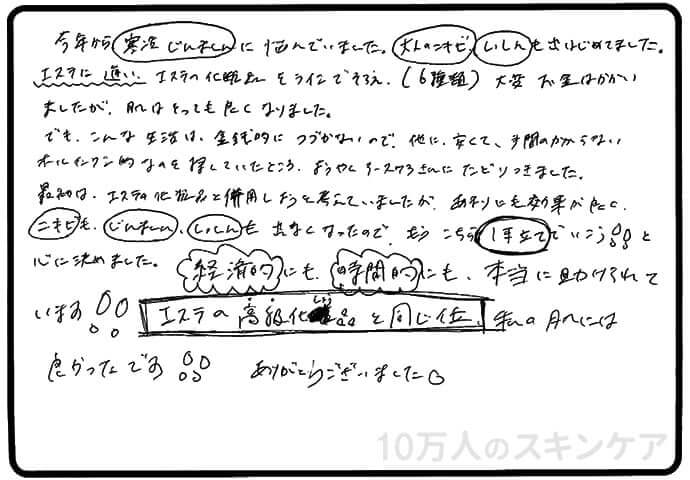 今年から寒冷じんましんに悩んでいました。大人のニキビ、しっしんも出はじめてました。
エステに通い、エステの化粧品をラインでそろえ、(6種類)大変お金はかかい
ましたが、肌はとっても良くなりました。
でも、こんな生活は、金銭的につづかないので、他に、安くて、手間のかからない
オールインワン的なのを探していたところ、ようやくさんにたどりつきました。
最初は、エステの化粧品と併用しようと考えていましたが、あまりにも効果が良く、
ニキビも、じんましん、しっしんも出なくなったので、もうこちら1本立てでいこう!!と
心に決めました。経済的にも、時間的にも、本当に助けられて
います!!エステの高級化粧品と同じ位、私の肌には
良かったです!!ありがとうございました。
10万人のスキンケア